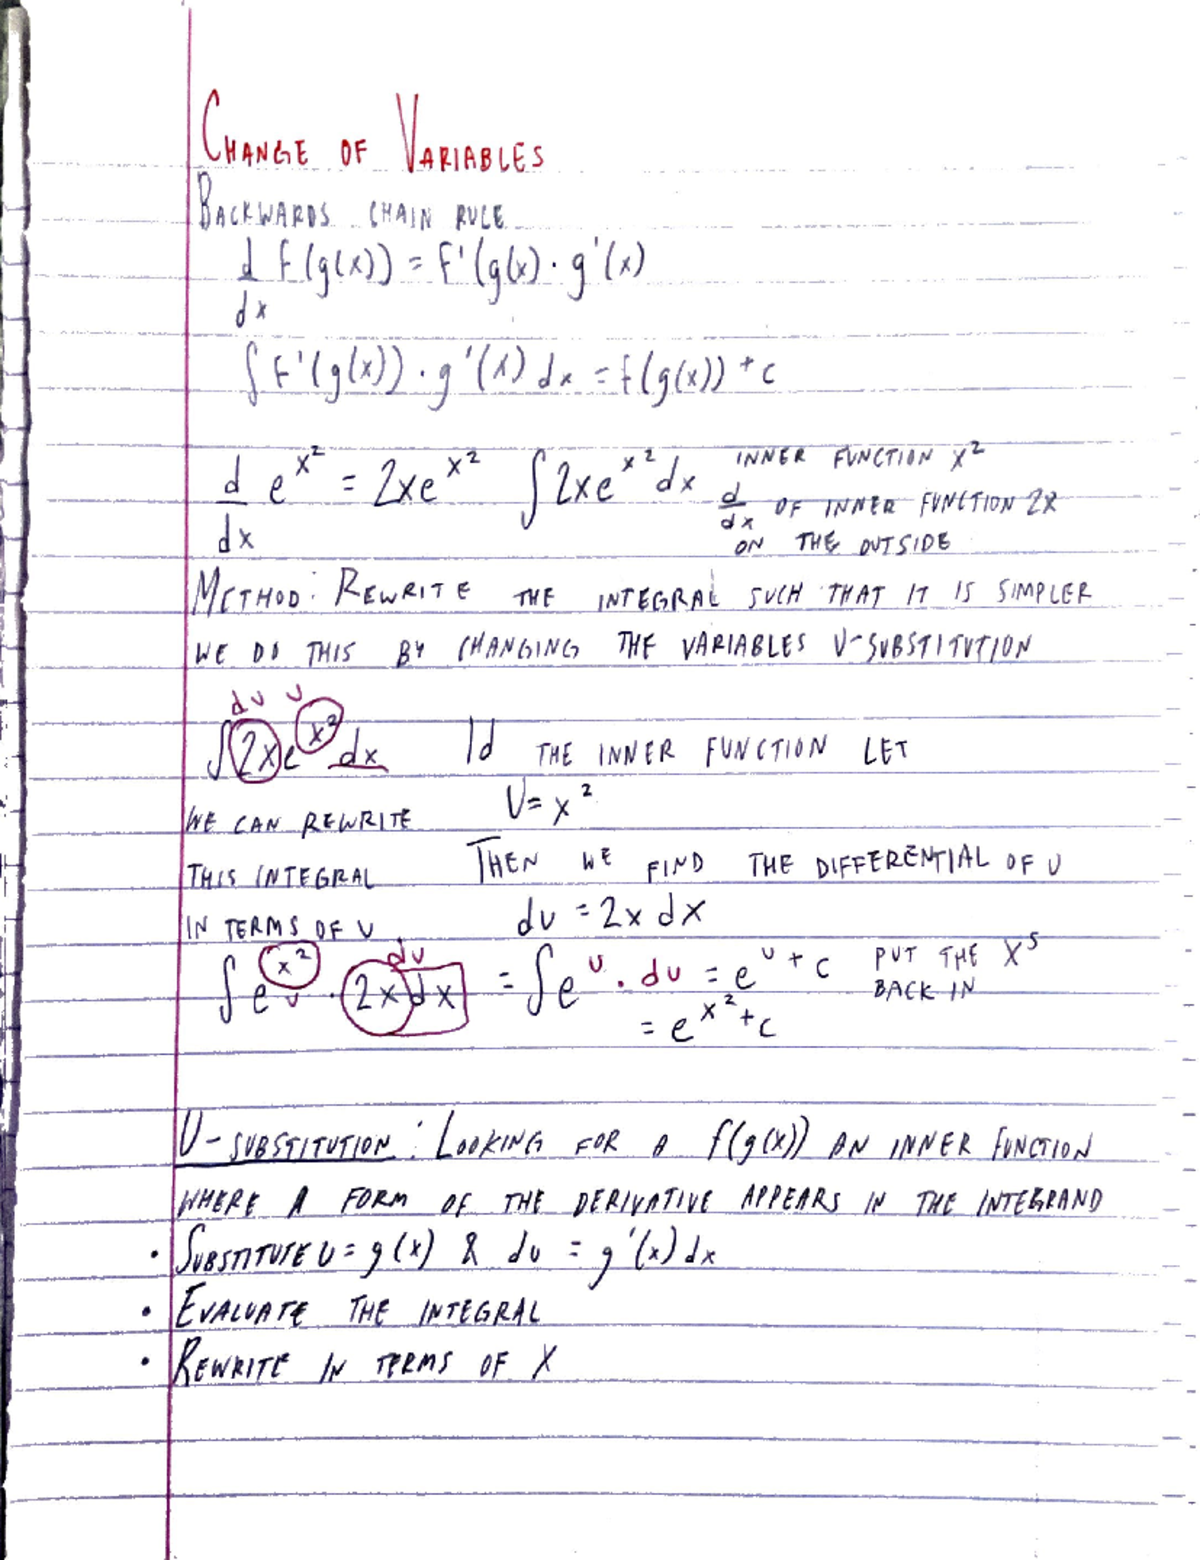 CHANGE OF VARIABLES
BACKWARDS CHAIN RULE
d/dx f(g(x)) = f'(g(x) · g'(x)
∫ f'(g(x)) · g'(x) dx = f(g(x)) + c
d/dx e^x² = 2xe^x² ∫2xe^x² dx INNER FUNCTION x²
d/dx OF INNER FUNCTION 2x
ON THE OUTSIDE
METHOD: REWRITE THE INTEGRAL SUCH THAT IT IS SIMPLER
WE DO THIS BY CHANGING THE VARIABLES U-SUBSTITUTION
du u
∫2xe^x² dx Id THE INNER FUNCTION LET
U = x²
WE CAN REWRITE
THIS INTEGRAL THEN WE FIND THE DIFFERENTIAL OF U
IN TERMS OF U du = 2x dx
du
∫e^x² · 2xdx = ∫e^u · du = e^u + c PUT THE X^S
u BACK IN
= e^x² + c
U-SUBSTITUTION: LOOKING FOR A f(g(x)) AN INNER FUNCTION
WHERE A FORM OF THE DERIVATIVE APPEARS IN THE INTEGRAND
• SUBSTITUTE U = g(x) & du = g'(x) dx
• EVALUATE THE INTEGRAL
• REWRITE IN TERMS OF X